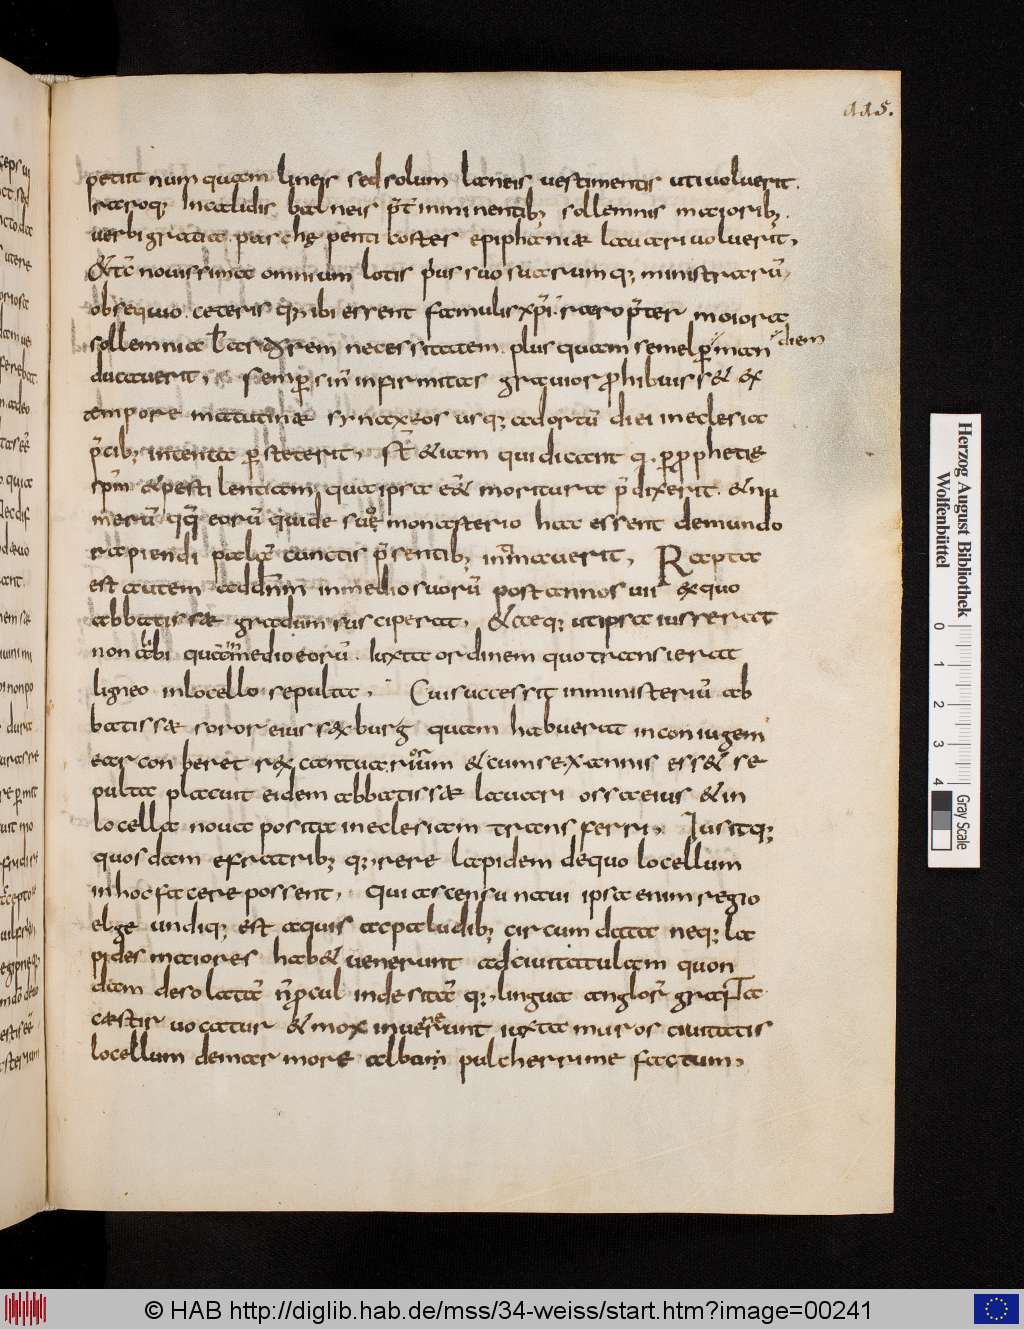 115.
petiit num quam lineis sed solum laneis uestimentis uti uoluerit.
raroq; In calidis balneis p̄t inminentib; sollemnis maiorib;.
uerbi gratia paschę penticostes epiphaniae lauari uoluerit,
& tc̄ nouissima omnium lotis prius suo suarumq; ministrarū,
obsequio. ceteris q; ibi essent famulis xp̄i. raro p̄ter maiora
sollemnia ł arg&rem necessitatem. plus quam semel ꝑ man
diem
ducauerit, Semꝑ sin̄ infirmitas grauior ꝓhibuiss& ex
tempore matutinae synaxeos usq; ad ortū diei in eclesia
p̄cib; intenta ꝑsteterit, st̄ &iam qui dicant q. ꝑ ꝓphetię
sp̄m &pestilentiam qua ipsa er& moritura p̄dixerit. &nu
merū qq̨ eorū qui de suo monasterio hac essent de mundo
rapiendi palā cunctis p̄sentib; intimauerit, Rapta
est autem ad dn̄m in medio suorū post annos uii ex quo
abbatissae gradum susciperat, &aeq; ut ipsa iusserat
non alibi quam in medio eorū. Iuxta ordinem quo transierat
ligneo in locello sepulta, Cui successit in ministeriū ab
batissae soror eius sexburg quam habuerat in coniugem
earconberet rex cantuariorum &cum sex annis ess& se
pulta placuit eidem abbatissae lauari ossa eius &in
locella noua posita in eclesiam transferri, Iusitq;
quosdam e fratrib; q;rere lapidem de quo locellum
in hoc facere possent, qui ascensu naui ipsa enim regio
elge undiq; est aquis ac paludib; circumdata neq; la
pides maiores hab& uenerunt ad ciuitatulam quon
dam desolatā n̄ ꝓcul inde sitā q; lingua anglor̄ granta
caestir uocatur &mox inuenerunt iuxta muros ciuitatis
locellum de marmore albam pulcherrime factum,
Herzog August Bibliothek
Wolfenbüttel
0 1 2 3 4
Gray Scale
© HAB http://diglib.hab.de/mss/34-weiss/start.htm?image=00241